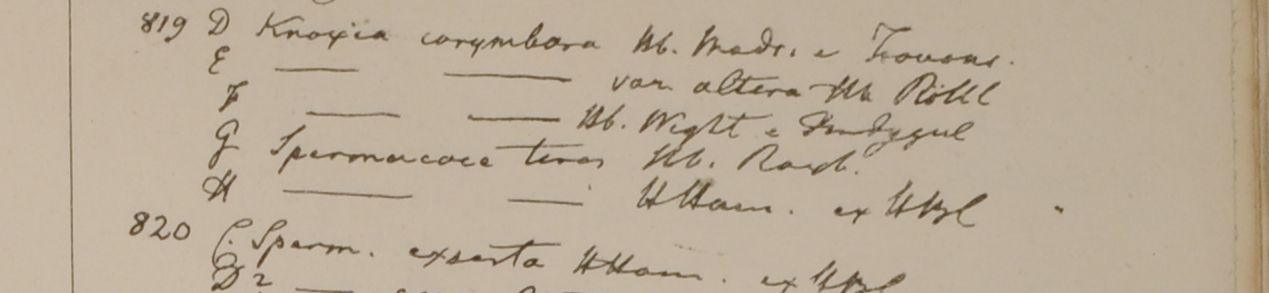 819 D Knoxia corymbosa Hb. Madr. e Travanc.
E — — var altera Hb Röttl
F — — Hb. Wight e Dindygul
G Spermacoce teres Hb. Roxb.
H — — HHam. ex HBC
820 C. Sperm. exserta HHam. ex HBC
D 2 —